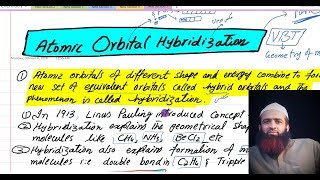 Atomic Orbital Hybridization
VBT
Geometry of m
① Atomic orbitals of different shape and energy combine to for
new set of equivalent orbitals called hybrid orbitals and the
phenomenon is called hybridization.
① In 1913, Linus Pauling introduced concept
② Hybridization explains the geometrical shap
molecules like CH₄, NH₃, BeCl₂ etc
③ Hybridization also explains formation of m
molecules i.e double bond in C₂H₄ & Tripple